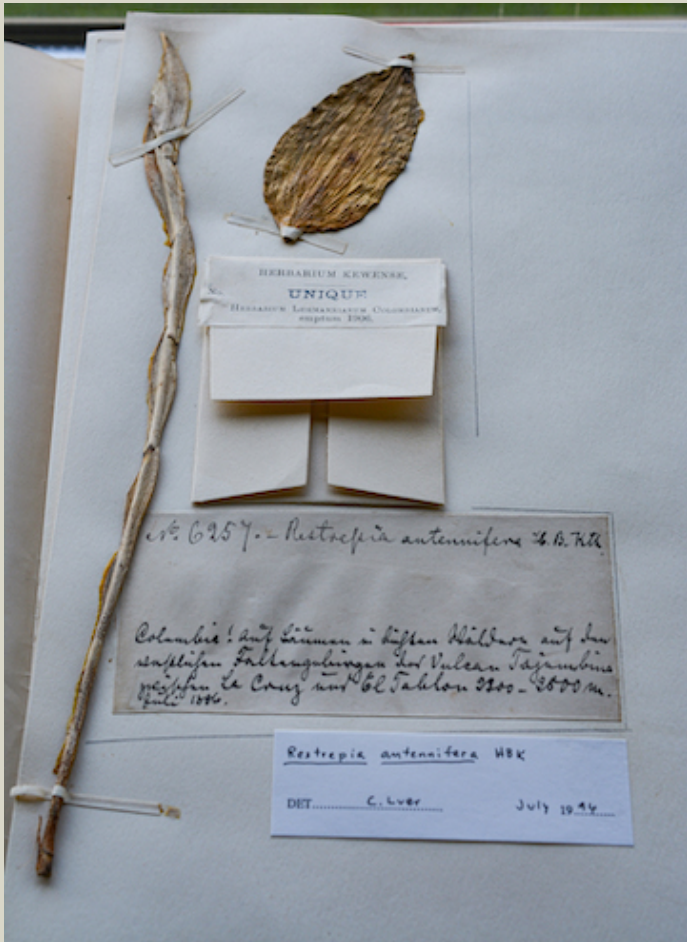 HERBARIUM KEWENSE.
UNIQUE
HERBARIUM LEHMANNIANUM COLOMBIANUM,
emptum 1906.
No. 6257. - Restrepia antennifera H.B.Kth
Columbia! auf Bäumen in lichten Wäldern auf den
westlichen Faltengebirgen der Vulcan Tajumbina
zwischen La Cruz und El Tablon 2200-2600 m.
Juli 1886.
Restrepia antennifera HBK
DET. C. Luer July 1994